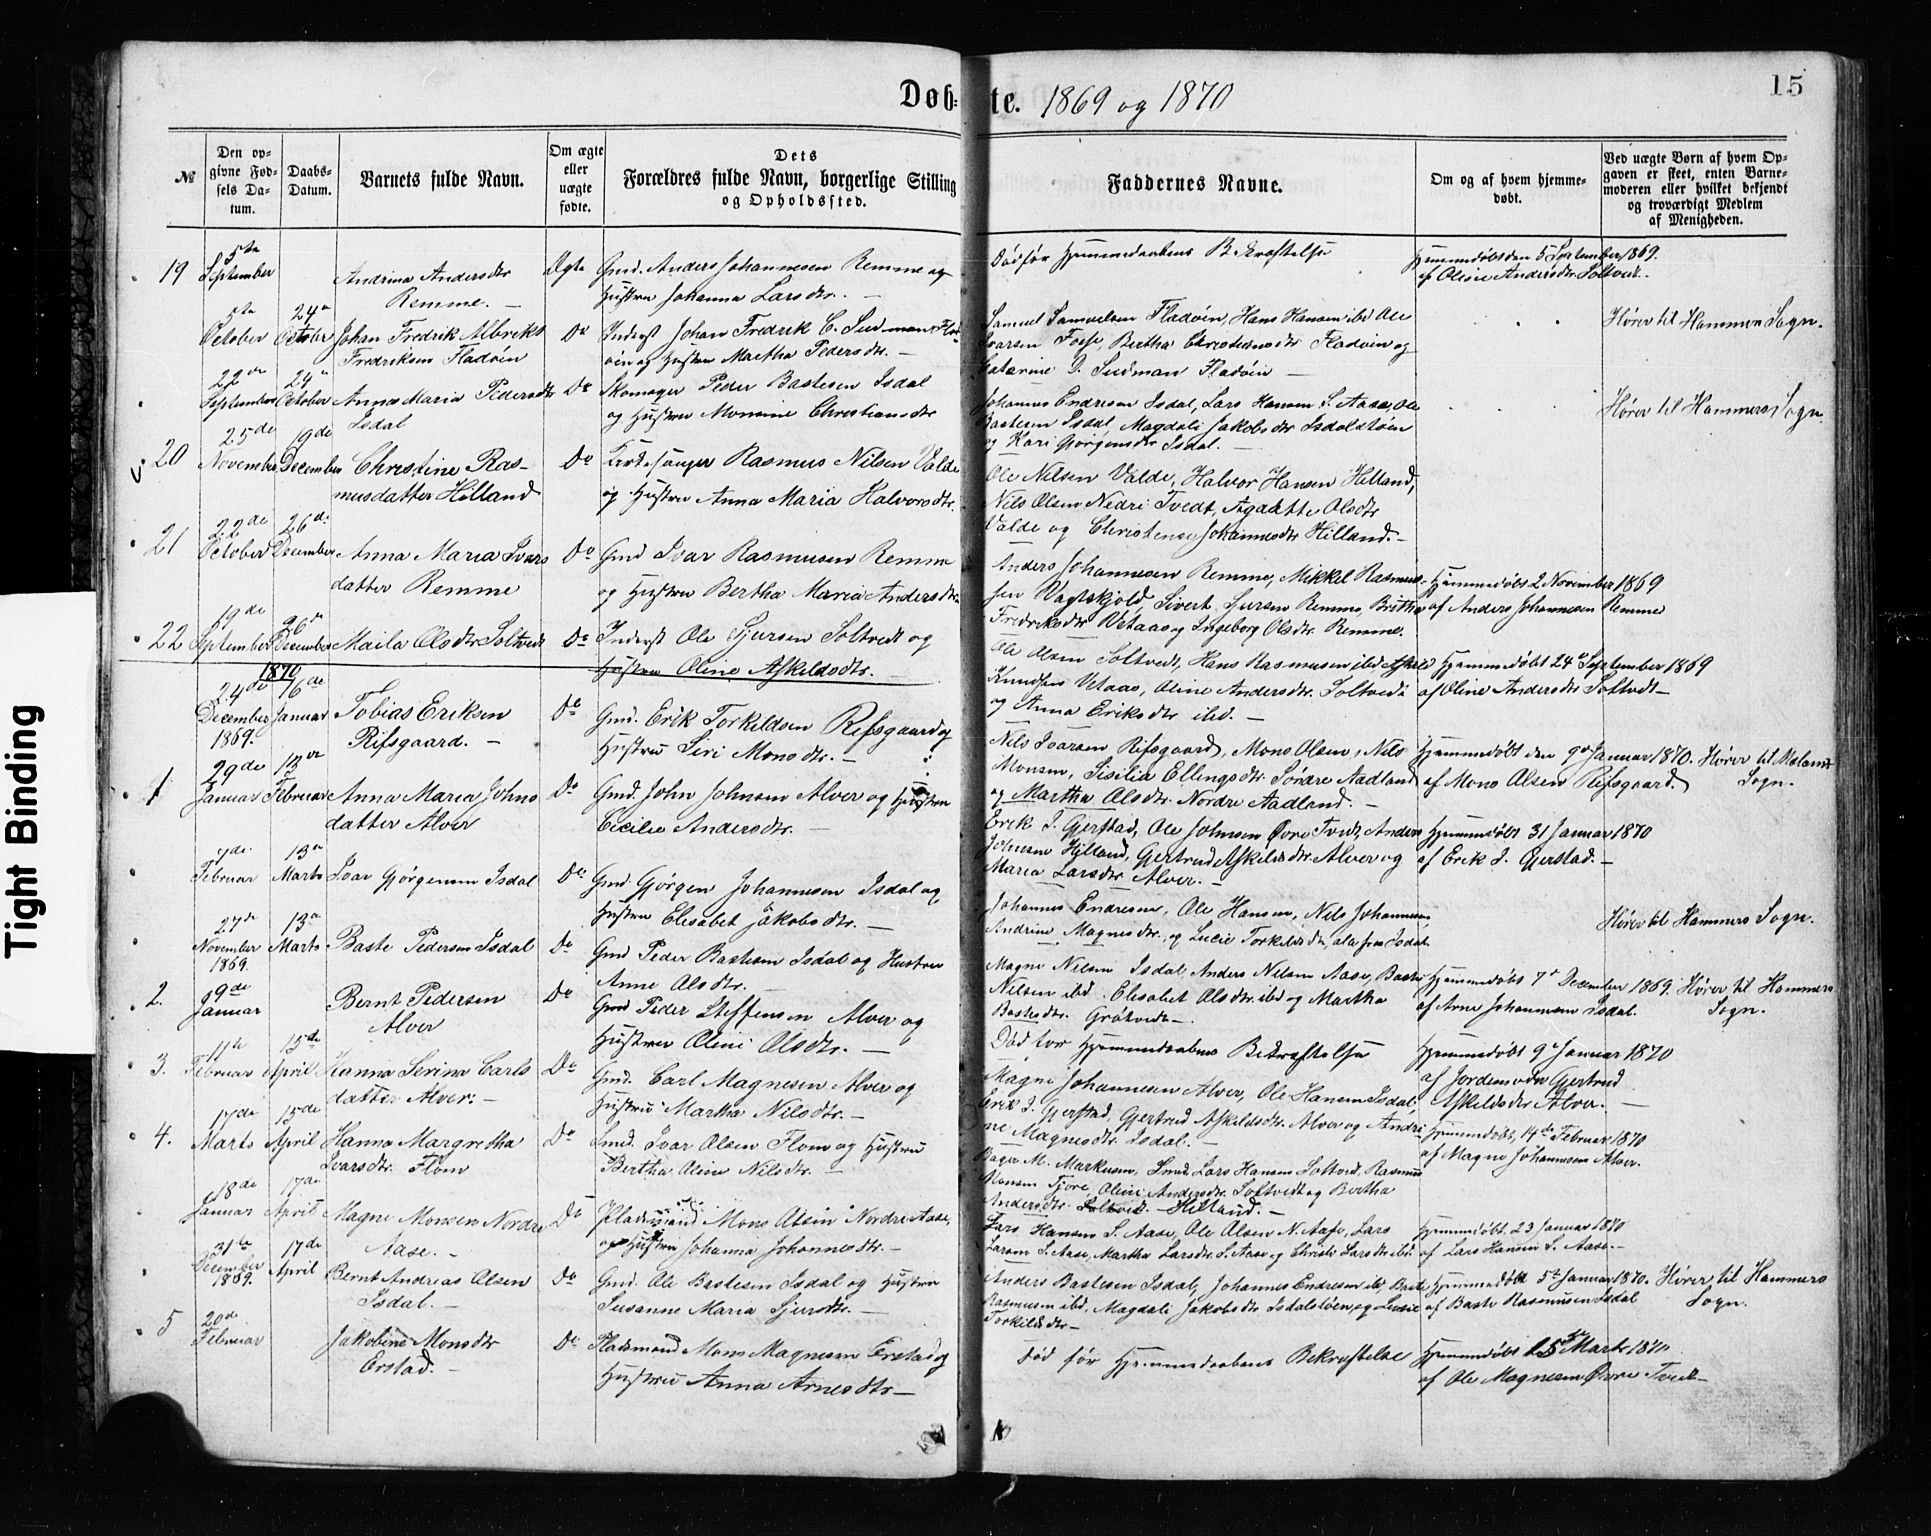 Tight Binding
Døb=
te. 1869 og 1870
15
№
Den op-
givne Fød-
sels Da-
tum.
Daabs-
Datum.
Barnets fulde Navn.
Om ægte
eller
uægte
fødte.
Dets
Forældres fulde Navn, borgerlige Stilling
og Opholdssted.
Faddernes Navne.
Om og af hvem hjemme-
døbt.
Ved uægte Børn af hvem Op-
gaven er skeet, enten Barne-
moderen eller hvilket bekjendt
og troværdigt Medlem
af Menigheden.
19 5te September Andrina Andersdtr Ægte Gmd. Anders Johannesen Remme og
Remme. Hustru Johanna Larsdtr.
Død før Hjemmedaabens Bekræftelse Hjemmedøbt den 5 September 1869.
af Oline Andersdtr Soltvet.
October 24 October Johan Fredrik Albrekt Do Inderst Johan Fredrik C. Sudmann
Fredriksen Fladøien og Hustru Martha Pedersdtr.
Samuel Samuelsen Fladøien, Hans Hansen ibd Ole
Ivarsen Fosse, Bertha Christensdtr Fladøien og
Catarine D. Sudman Fladøien
Hører til Hammers Sogn.
22de September 24 October Anna Maria Pedersdtr Do Skomager Peder Bastesen Isdal
Isdal og Hustru Monsine Christiansdtr
Johannes Endresen Isdal, Lars Hansen S. Aase, Ole
Bastesen Isdal, Magdali Jakobsdtr Isdalstøen
og Kari Gjørgensdtr Isdal.
Hører til Hammers Sogn.
20 25de November 19de December Christine Ras- Do Kirkesanger Rasmus Nilsen Valde
musdatter Hilland og Hustru Anna Maria Halvorsdtr.
Ole Nilsen Valde, Halvor Hansen Hilland,
Nils Olsen Nedre Tvedt, Agathe Olsdtr
Valde og Christense Johannesdtr Hilland.
21 22de October 26de December Anna Maria Ivars Do Gmd Ivar Rasmusen Remme
datter Remme og Hustru Bertha Maria Andersdtr.
Anders Johannesen Remme, Mikkel Rasmus-
sen Vagtskjold, Sivert Sjursen Remme Britha
Fredriksdtr Vetaas og Ingeborg Olsdtr Remme.
Hjemmedøbt 2 November 1869
af Anders Johannesen Remme
22 19de September 26de December Maila Olsdtr Soltvedt Do Inderst Ole Sjursen Soltvedt og
Hustru Oline Askildsdtr.
Ole Olsen Soltvedt, Hans Rasmusen ibd Askild
Knudsen Vetaas, Oline Andersdtr. Soltvedt
og Anna Eriksdtr ibd.
Hjemmedøbt 24 September 1869
af Oline Andersdtr Soltvedt
1870
24de December 1869. 16de Januar Tobias Eriksen Do Gmd. Erik Torkildsen Rifsgaard og
Rifsgaard. Hustru Siri Monsdtr.
Nils Ivarsen Rifsgaard, Mons Olsen, Nils
Monsen, Sisilia Ellingsdtr. Søndre Aadland
og Martha Olsdtr. Nordre Aadland.
Hjemmedøbt den 9 Januar 1870.
af Mons Olsen Rifsgaard.
Hører til
Sogn.
1 29de Januar Februar Anna Maria Johns Do Gmd. John Johnsen Alver og Hustru
datter Alver Cecilie Andersdtr.
Erik J. Gjerstad, Ole Johnsen Øvre Tvedt, Anders
Johnsen Hilland, Gjertrud Askildsdtr. Alver og
Maria Larsdtr Alver.
Hjemmedøbt 31 Januar 1870
af Erik J. Gjerstad.
7de Februar 13 Marts Ivar Gjørgensen Isdal Do Gmd. Gjørgen Johannesen Isdal og
Hustru Elisabet Jakobsdtr.
Johannes Endresen, Ole Hansen, Nils Johannesen,
Andrine Magnesdtr. og Lucie Torkildsdtr, alle fra Isdal.
Hører til Hammers Sogn.
27de November 1869. 13 Marts Baste Pedersen Isdal Do Gmd Peder Bastesen Isdal og Hustru
Anne Olsdtr.
Magne Nilsen Isdal, Anders Nilsen Aase, Baste
Nilsen ibd. Elisabet Olsdtr. ibd og Martha
Bastesdtr.
Hjemmedøbt 7 December 1869.
af Arne Johannesen Isdal.
Hører til Hammers
Sogn.
2. 9de Januar Bernt Pedersen Do Gmd Peder Steffensen Alver og
Alver Hustru Oline Olsdtr.
Død før Hjemmedaabens Bekræftelse
Hjemmedøbt 9 Januar 1870
af Jordemoder Gjertrud
Askildsdtr Alver.
3. 11te Februar 15de April Hanna Serina Carls Do Gmd. Carl Magnesen Alver og
datter Alver. Hustru Martha Nilsdtr.
Magne Johannesen Alver, Ole Hansen Isdal,
Erik J. Gjerstad, Gjertrud Askildsdtr. Alver og Andri-
ne Magnesdtr. Isdal.
Hjemmedøbt, 14de Februar 1870
af Magne Johannesen Alver.
4. 17de Marts 15de April Hanna Margretha Do Smed. Ivar Olsen Flom og Hustru
Ivarsdtr. Flom Bertha Oline Nilsdtr.
Bager M. Markusen, Smed Lars Hansen Soltved, Rasmus
Monsen Fjore, Oline Andersdtr. Soltvedt og Bertha
Andersdtr. Soltved. Hilland.
18de Januar 17de April Magne Monsen Nordre Do Pladsmand Mons Olsen Nordre Aase,
Aase. og Hustru Johanna Johannesdtr.
Lars Hansen S. Aase, Ole Olsen N. Aase, Lars
Larsen S. Aase, Martha Larsdtr. S. Aase og Christi Larsdtr ibd.
Hjemmedøbt. 23 Januar 1870
af Lars Hansen S. Aase.
31te December 1869. 17de April Bernt Andreas Olsen Do Gmd. Ole Bastesen Isdal og Hustru
Isdal. Susanne Maria Sjursdtr.
Anders Bastesen Isdal, Johannes Endresen ibd, Baste
Rasmusen ibd. Magdali Jakobsdtr Isdalstøen, og Lucie
Torkildsdtr
Hjemmedøbt 5te Januar 1870.
af Baste Rasmusen Isdal
Hører til Hammers
Sogn.
5 20de Februar Jakobine Monsdtr Do Pladsmand Mons Magnesen Erstad og
Erstad. Hustru Anna Arnesdtr
Død før Hjemmedaabens Bekræftelse
Hjemmedøbt 15 Marts 1870
af Ole Magnesen Øvre Tvedt